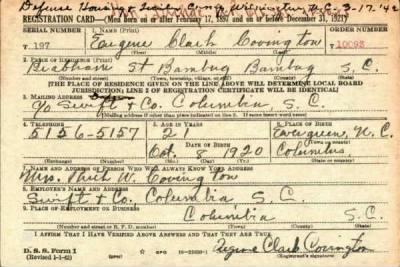 Defense Housing & Wilmington N.C. 3-17-42
REGISTRATION CARD—(Men born on or after February 17, 1897 and on or before December 31, 1921)
SERIAL NUMBER 1. NAME (Print) ORDER NUMBER
T 197 Eugene Clark Covington 10093
2. PLACE OF RESIDENCE (Print)
St Bamberg Bamberg S. C.
(Number and street) (Town, township, village, or city) (County) (State)
[THE PLACE OF RESIDENCE GIVEN ON THE LINE ABOVE WILL DETERMINE LOCAL BOARD
JURISDICTION; LINE 2 OF REGISTRATION CERTIFICATE WILL BE IDENTICAL]
3. MAILING ADDRESS
c/o Swift & Co. Columbia, S. C.
[Mailing address if other than place indicated on line 2. If same insert word same]
4. TELEPHONE 5. AGE IN YEARS 6. PLACE OF BIRTH
5156-5157 21 Evergreen, N. C.
DATE OF BIRTH
Oct. 8 1920 Columbus
(Mo.) (Day) (Yr.)
7. NAME AND ADDRESS OF PERSON WHO WILL ALWAYS KNOW YOUR ADDRESS
Mrs. W. Covington
8. EMPLOYER'S NAME AND ADDRESS
Swift & Co. Columbia, S. C.
9. PLACE OF EMPLOYMENT OR BUSINESS
Columbia S.C.
(Number and street or R. F. D. number) (Town) (County) (State)
I AFFIRM THAT I HAVE VERIFIED ABOVE ANSWERS AND THAT THEY ARE TRUE.
D. S. S. Form 1
(Revised 1-1-42) GPO Eugene Clark Covington
(Registrant's signature)